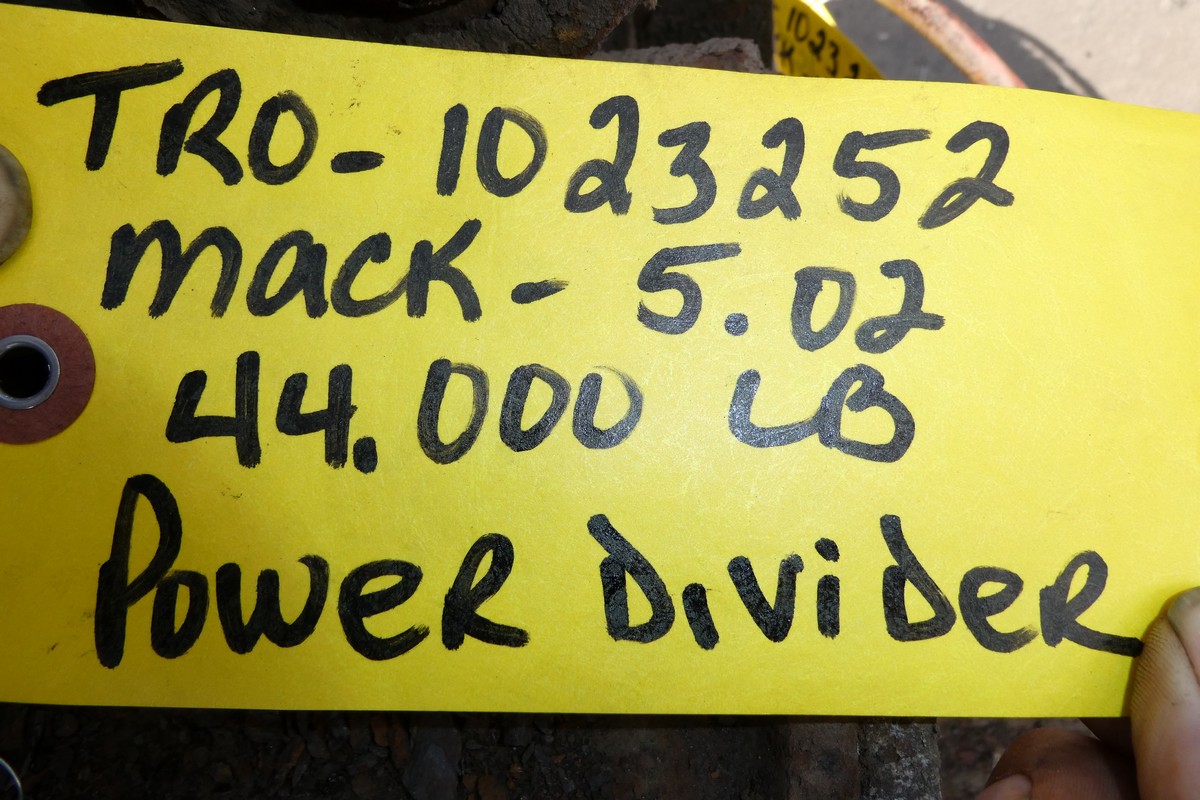 TRO-1023252
Mack-5.02
44.000 LB
Power Divider
1023